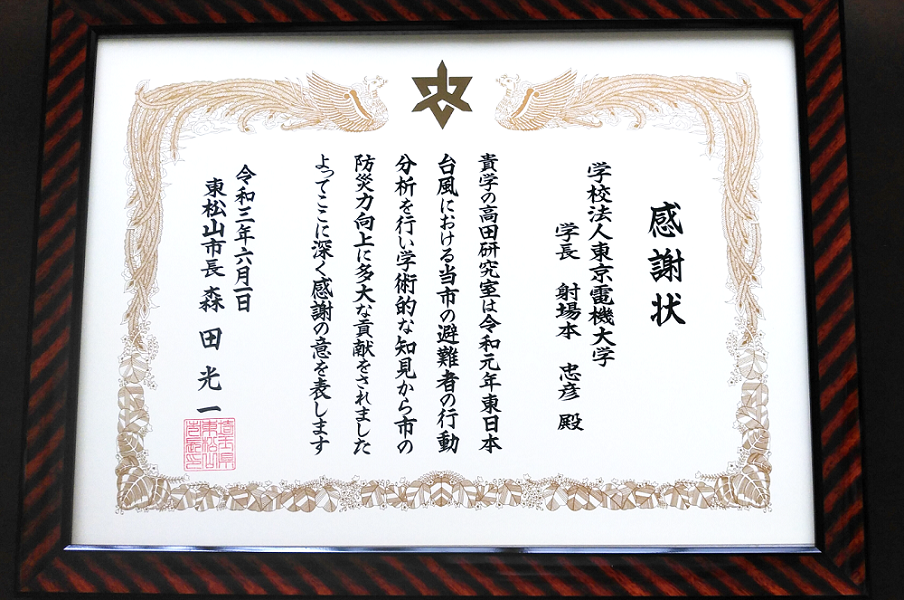 感謝状
学校法人東京電機大学
学長 射場本 忠彦 殿
貴学の高田研究室は令和元年東日本
台風における当市の避難者の行動
分析を行い学術的な知見から市の
防災力向上に多大な貢献をされました
よってここに深く感謝の意を表します
令和三年六月一日
東松山市長 森田光一
埼玉県
東松山
市長印